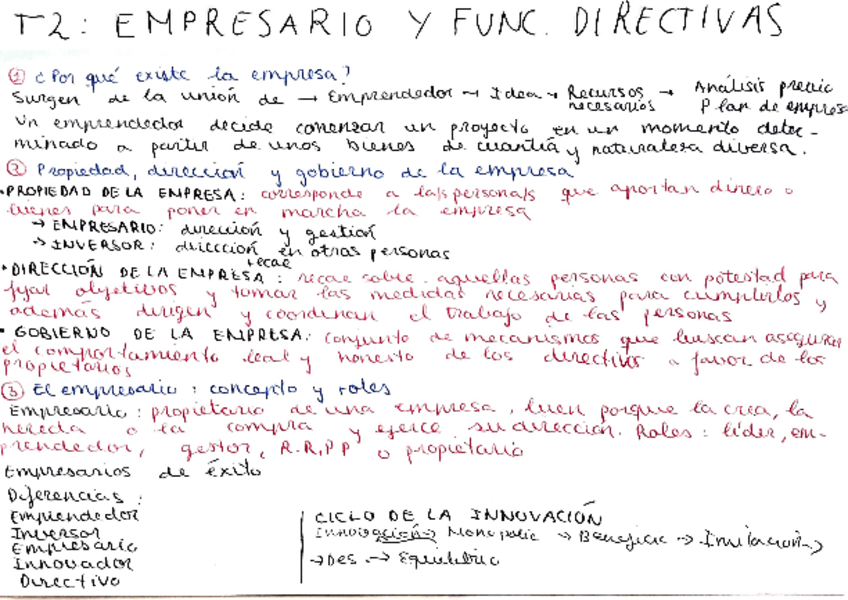 T2: EMPRESARIO Y FUNC. DIRECTIVAS
① ¿Por qué existe la empresa?
Surgen de la unión de → Emprendedor → Idea → Recursos necesarios → Análisis previo Plan de empresa
Un emprendedor decide comenzar un proyecto en un momento deter-
minado a partir de unos bienes de cuantía y naturaleza diversa.
② Propiedad, dirección y gobierno de la empresa
• PROPIEDAD DE LA EMPRESA: corresponde a la/s persona/s que aportan dinero o
bienes para poner en marcha la empresa
→ EMPRESARIO: dirección y gestión
→ INVERSOR: dirección recae en otras personas
• DIRECCIÓN DE LA EMPRESA: recae sobre aquellas personas con potestad para
fijar objetivos y tomar las medidas necesarias para cumplirlos y
además dirigen y coordinan el trabajo de las personas
• GOBIERNO DE LA EMPRESA: conjunto de mecanismos que buscan asegurar
el comportamiento leal y honesto de los directivos a favor de los
propietarios
③ El empresario: concepto y roles
Empresario: propietario de una empresa, bien porque la crea, la
hereda o la compra y ejerce su dirección. Roles: líder, em-
prendedor, gestor, R.R.PP o propietario
Empresarios de éxito
Diferencias:
Emprendedor
Inversor
Empresario
Innovador
Directivo
CICLO DE LA INNOVACIÓN
Innovación → Monopolio → Beneficio → Imitación →
→ Des. → Equilibrio